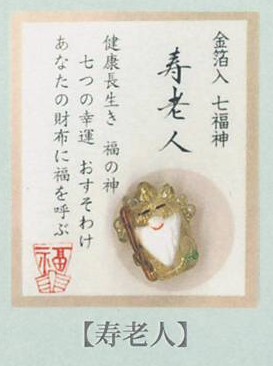 金箔入 七福神
寿老人
健康長生き 福の神
七つの幸運 おすそわけ
あなたの財布に福を呼ぶ
福
【寿老人】